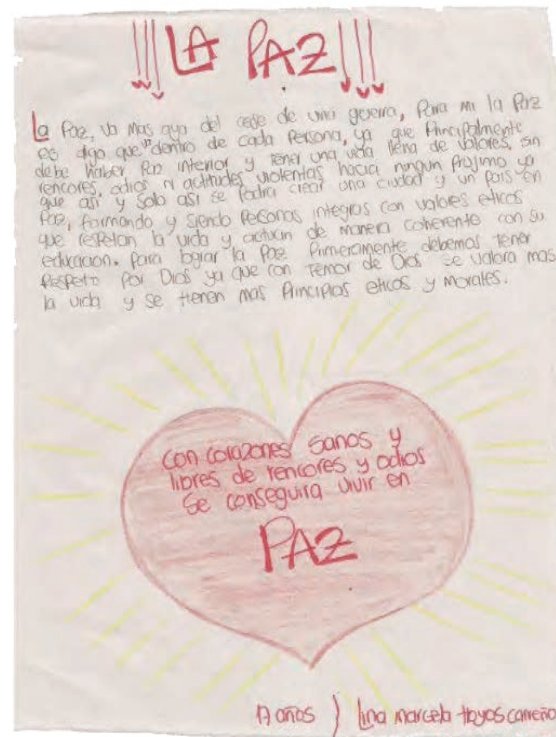 LA PAZ
La Paz, va mas aya del cese de una guerra, Para mi la Paz
es algo que "dentro de cada Persona, ya que Principalmente
debe haber Paz interior y tener una vida llena de valores, sin
rencores, odios ni actitudes violentas hacia ningun Projimo ya
que asi y solo asi se Podra crear una ciudad y un Pais en
Paz, formando y siendo Personas integras con valores eticos
que respetan la vida y actuan de manera coherente con su
educacion. Para lograr la Paz Primeramente debemos tener
Respeto Por Dios ya que con temor de Dios se valora mas
la vida y se tienen mas Principios eticos y morales.
con corazones sanos y
libres de rencores y odios
Se conseguira vivir en
PAZ
17 años ) lina marcela Hoyos carreño